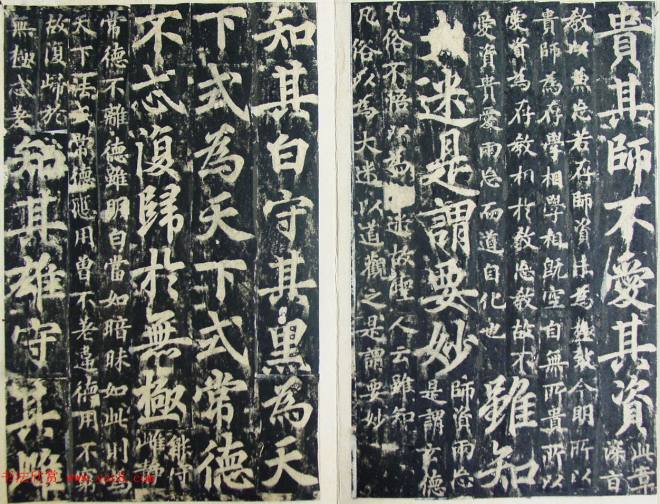 貴其師不愛其資
此章
深旨
教以兼忘若存師資未為極致今明所以
貴師為存學相學相既空自無所貴所以
愛資為存教相於教忘教故不
愛資貴愛兩忘而道自化也
雖知
大迷是謂要妙
師資兩忘
是謂玄德
凡俗不悟以為大迷故聖人云雖知
凡俗以為大迷以道觀之是謂要妙
知其白守其黑為天
下式為天下式常德
不忒復歸於無極
能守
雌靜
常德不離德雖明白當如暗昧如此則為
天下法式常德應用曾不差德用不
故復歸於
無極忒差
知其雄守其雌
书法欣赏